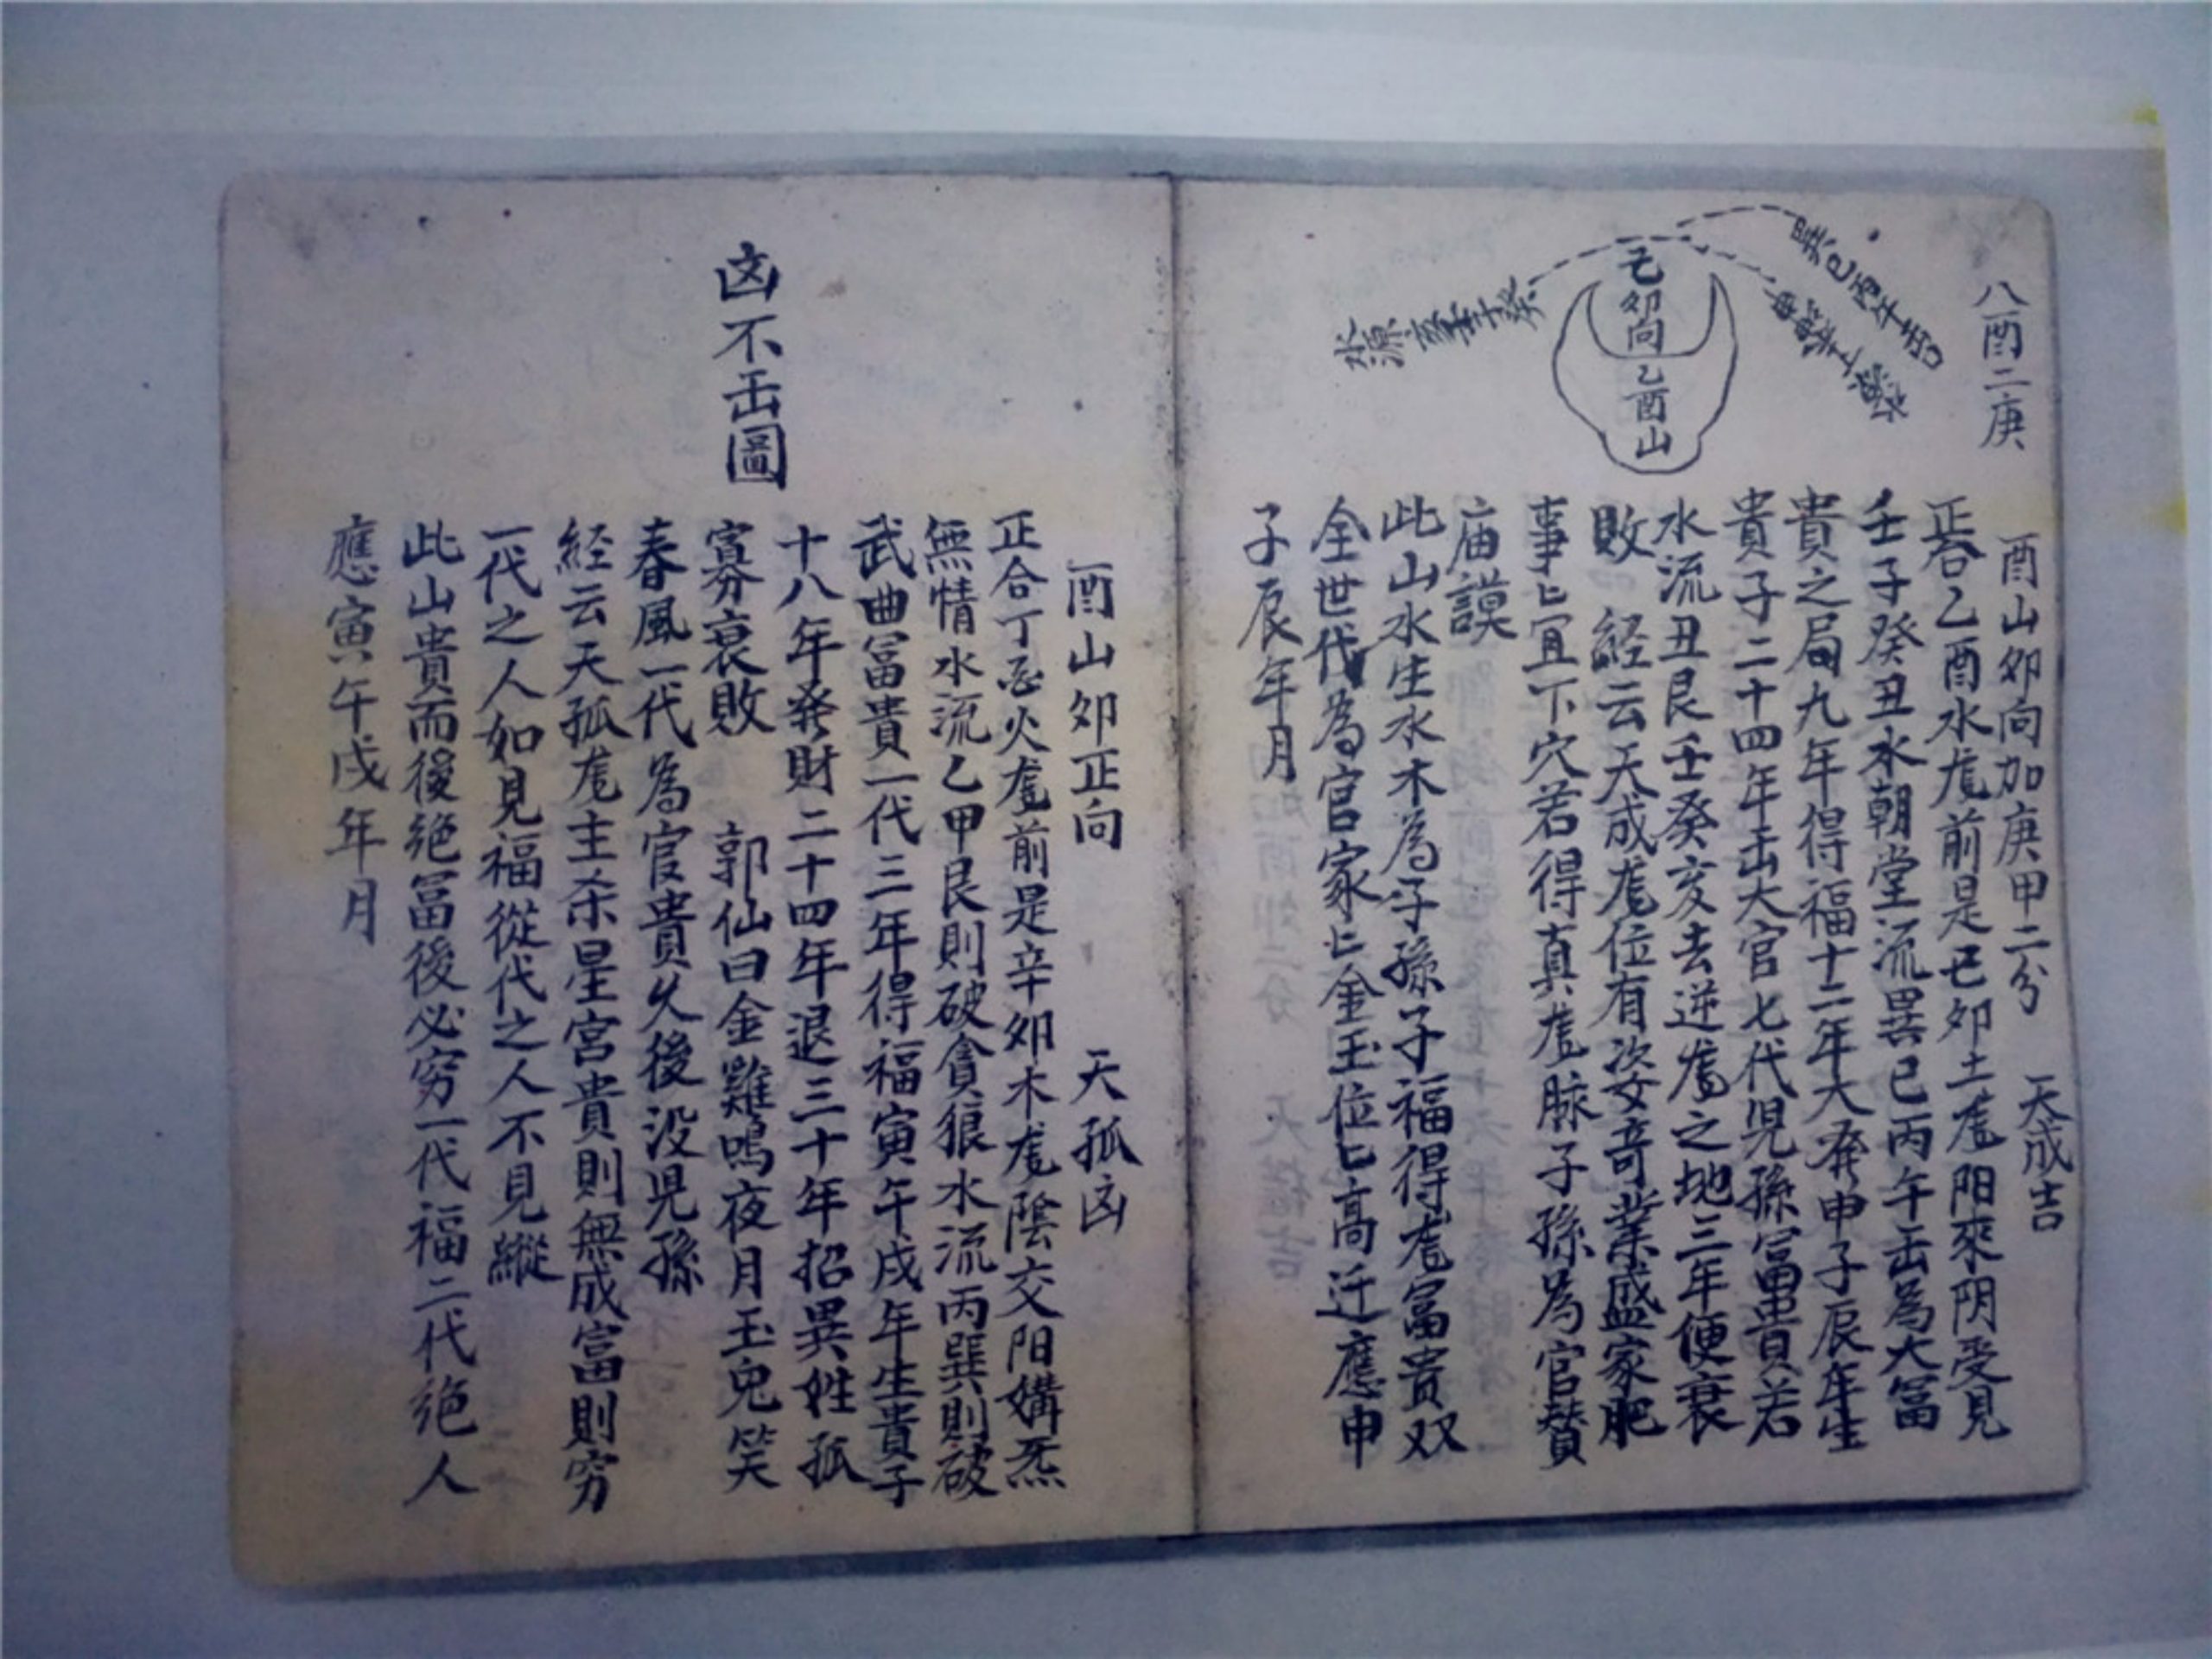 八酉二庚
己
卯向
乙酉山
巽巳丙午出
水源
酉山卯向加庚甲二分 天成吉
正合乙酉水𠪱前是己卯土𠪱阳來阴受見
壬子癸丑水朝堂流巽巳丙午出為大冨
貴之局九年得福十二年大発申子辰年生
貴子二十四年出大官七代児孫冨貴若
水流丑艮壬癸亥去逆𠪱之地三年便衰
敗 経云天成𠪱位有姿奇業盛家肥
事〻宜下穴若得真𠪱脉子孫為官賛
庙謨
此山水生水木為子孫子福得𠪱富贵双
全世代為官家〻金玉位〻高迁應申
子辰年月
酉山卯正向 天孤凶
正合丁酉火𠪱前是辛卯木𠪱陰交阳媾炁
無情水流乙甲艮則破貪狼水流丙巽則破
武曲冨貴一代三年得福寅午戌年生貴子
十八年発財二十四年退三十年招異姓孤
寡衰敗 郭仙曰金雞鳴夜月玉兔笑
春風一代為官貴久後没児孫
経云天孤𠪱主杀星宮貴則無成富則穷
一代之人如見福從代之人不見縱
此山貴而後绝冨後必穷一代福二代绝人
應寅午戌年月
凶不出圖